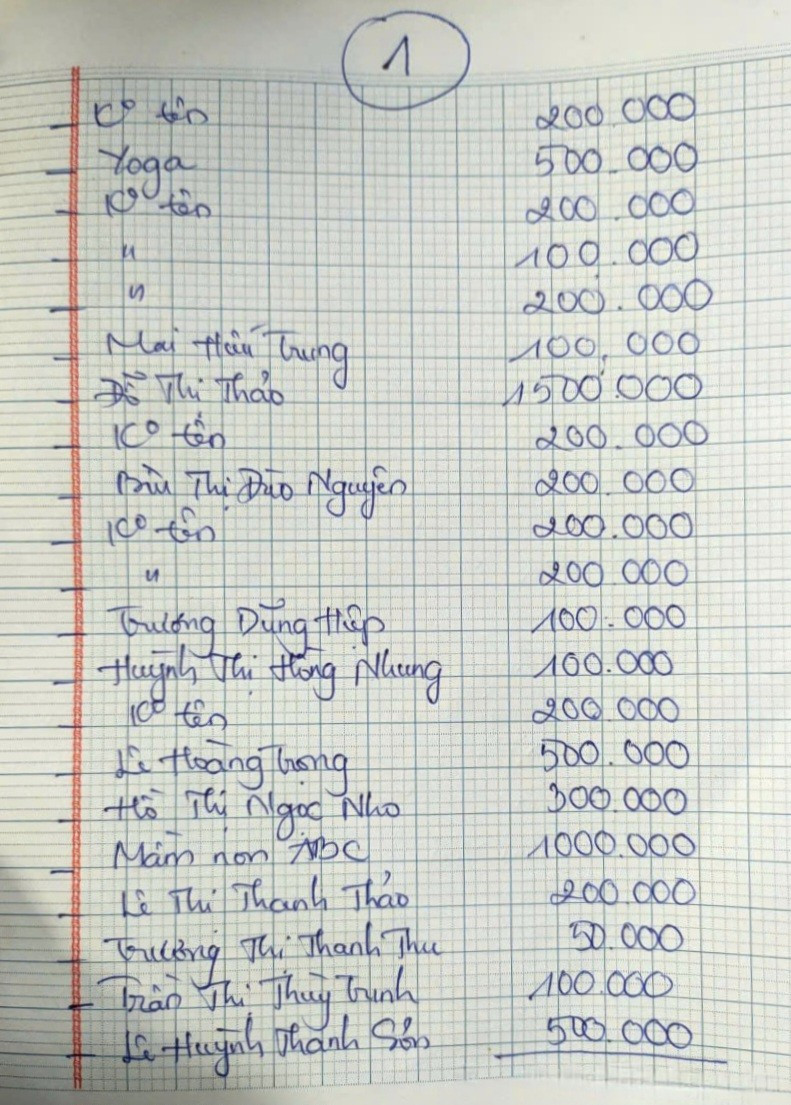 1
K° tên 200.000
Yoga 500.000
K° tên 200.000
" 100.000
" 200.000
Mai Hữu Trung 100.000
Đỗ Thị Thảo 1500.000
K° tên 200.000
Bùi Thị Đào Nguyên 200.000
K° tên 200.000
" 200.000
Trương Dũng Hiệp 100.000
Huỳnh Thị Hồng Nhung 100.000
K° tên 200.000
Lê Hoàng Trọng 500.000
Hồ Thị Ngọc Nho 300.000
Mầm non ABC 1000.000
Lê Thị Thanh Thảo 200.000
Trương Thị Thanh Thu 50.000
Trần Thị Thuỳ Trinh 100.000
Lê Huỳnh Thanh Sơn 500.000